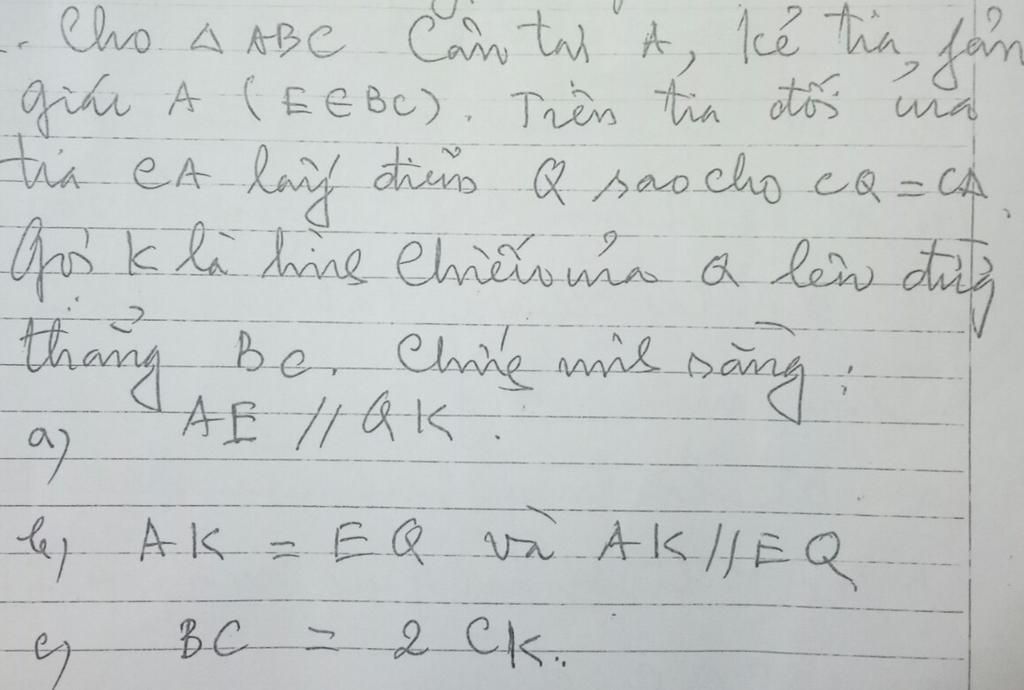 Cho △ ABC Cân tại A, kẻ tia fân
giác A (E∈BC). Trên tia đối của
tia CA lấy điểm Q sao cho CQ = CA.
Gọi K là hình chiếu của Q lên đường
thẳng BC. Chứng minh rằng:
a) AE // QK.
b) AK = EQ và AK // EQ
c) BC = 2 CK.